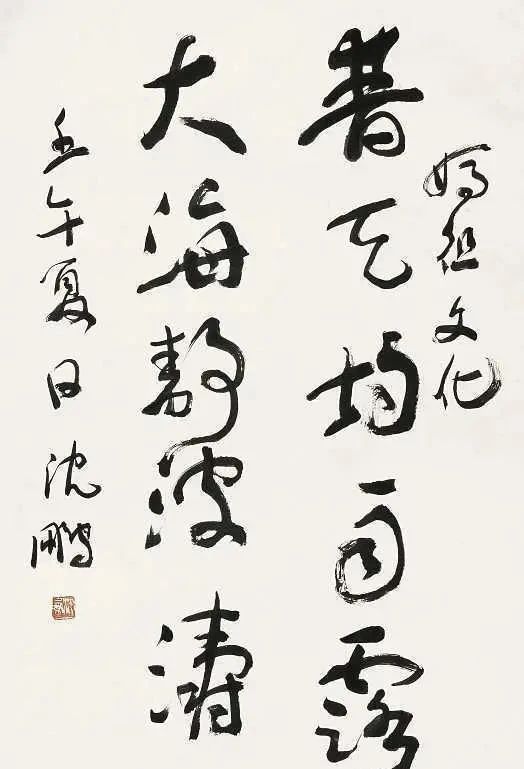 妈祖文化
普天均雨露
大海静波涛
壬午夏日 沈鹏